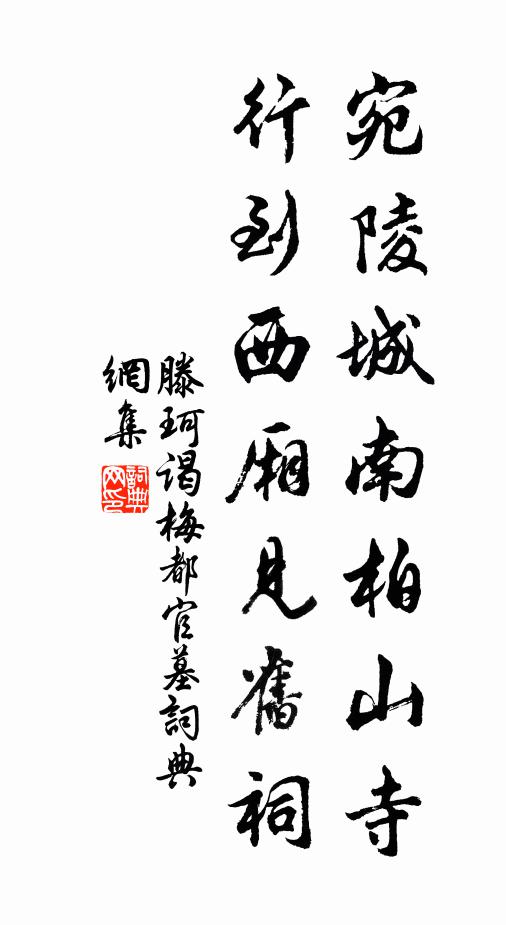 宛陵城南柏山寺
行到西廂見舊祠
滕珂謁梅都官墓詞典
網集
詞典網印